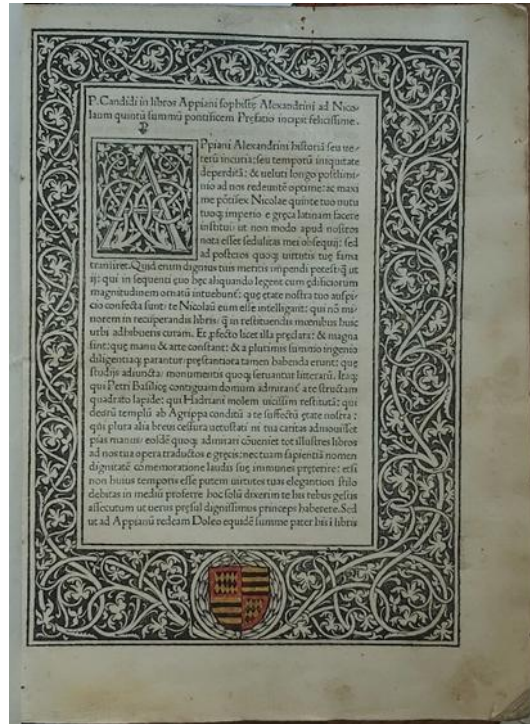 P. Candidi in libros Appiani sophistę Alexandrini ad Nico⸗
laum quintū summū pontificem Pręfatio incipit felicissime.
APpiani Alexandrini historiā seu ue⸗
terū incuria: seu temporū iniquitate
deperditā: & ueluti longo postlimi⸗
nio ad nos redeuntē optime: ac maxi
me pōtifex Nicolae quinte tuo nutu
tuoq; imperio e gręca latinam facere
institui: ut non modo apud nostros
nota esset sedulitas mei obsequij: sed
ad posteros quoq; uirtutis tuę fama
transiret. Quid enim dignius tuis meritis impendi potest: q̄ ut
ij: qui in sequenti ęuo hęc aliquando legent cum ędificiorum
magnitudinem ornatū intuebunt̄: quę ętate nostra tuo auspi⸗
cio confecta sunt: te Nicolaū eum esse intelligant: qui nō mi⸗
norem in recuperandis libris: q̄ in restituendis mœnibus huic
urbi adhibueris curam. Et ꝓfecto licet illa pręclara: & magna
sint: quę manu & arte constant: & a plurimis summo ingenio
diligentiaq; parantur: pręstantiora tamen habenda erunt: quę
studijs adiuncta: monumentis quoq; seruantur litterarū. Itaq;
qui Petri Basilicę contiguam domum admirant̄ a te structam
quadrato lapide: qui Hadriani molem uicissim restitutā: qui
deorū templū ab Agrippa conditū a te suffectū ętate nostra:
qui plura alia breui cessura uetustati ni tua caritas admouisset
pias manus: eosdē quoq; admirari cōueniet tot illustres libros
ad nos tua opera traductos e gręcis: nec tuam sapientiā nomen
dignitatē cōmemoratione laudis suę immunes pręterire: etsi
non huius temporis esse putem uirtutes tuas elegantiori stilo
debitas in mediū proferre hoc solū dixerim te his rebus gestis
assecutum ut uerus pręsul dignissimus princeps haberere. Sed
ut ad Appianū redeam Doleo equidē summe pater his i libris